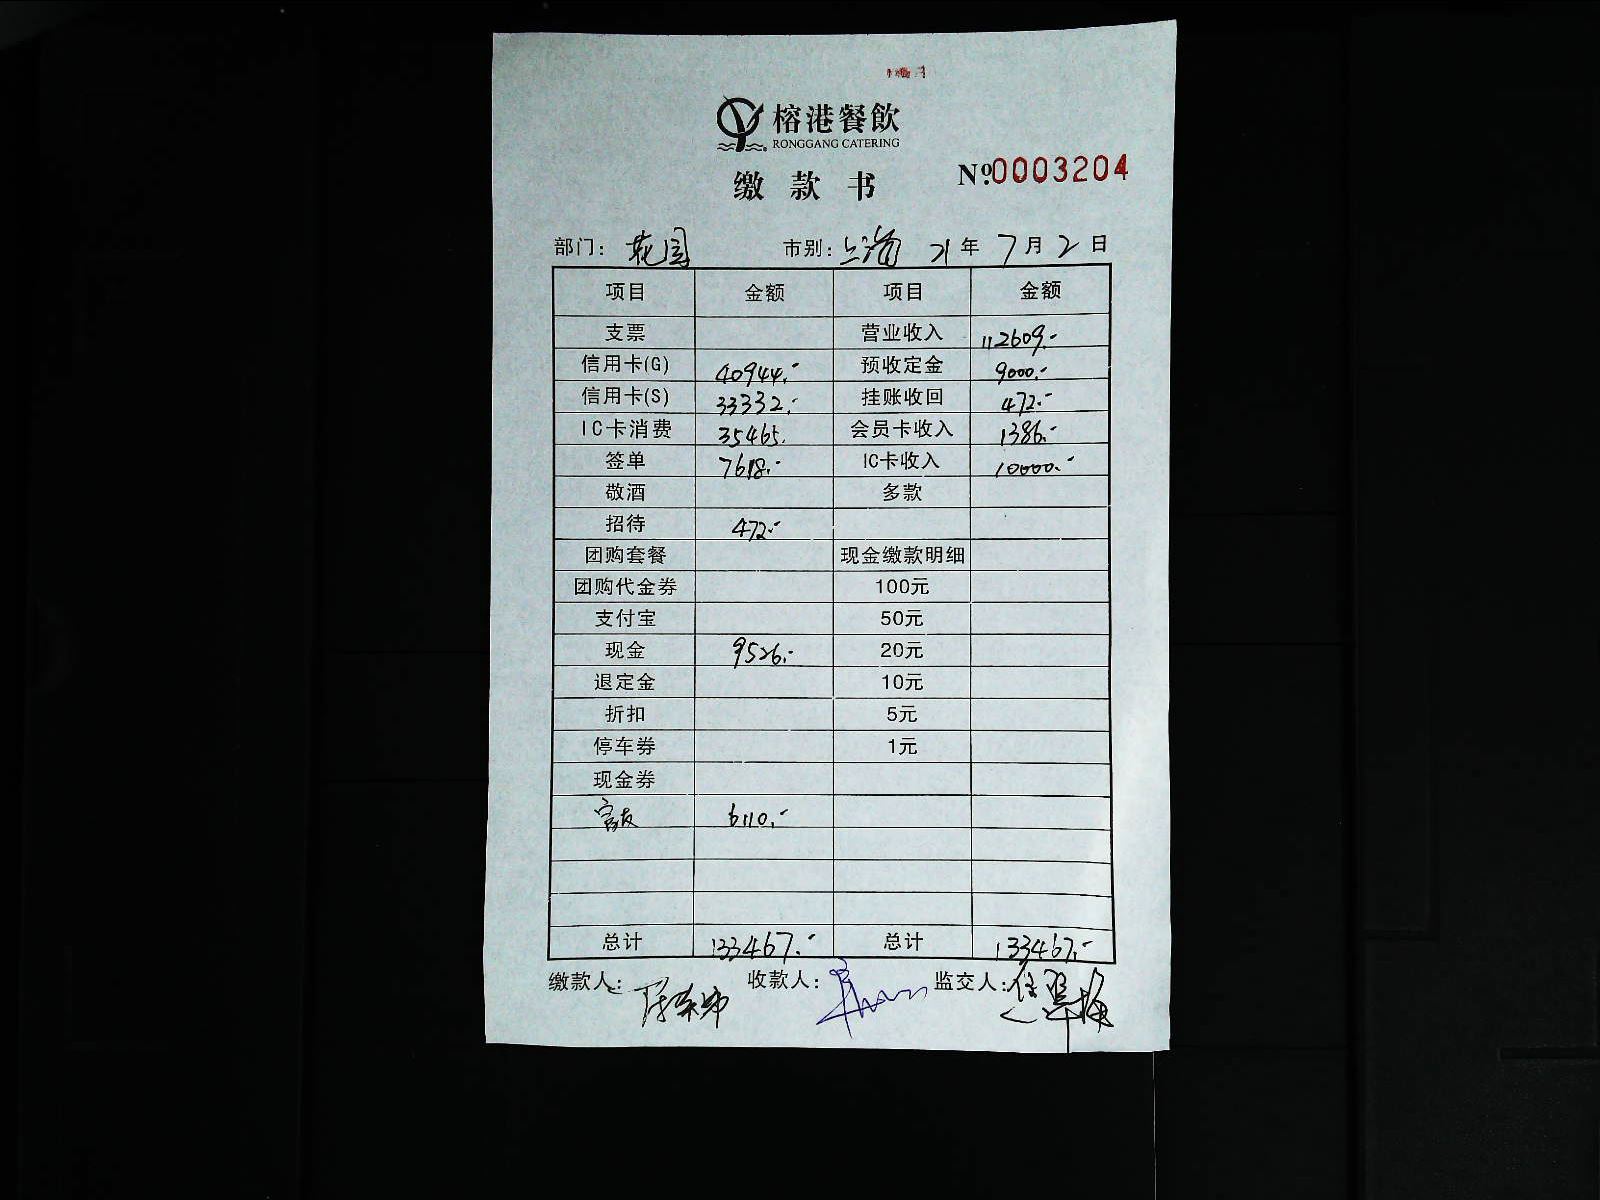 榕港餐飲
RONGGANG CATERING
缴款书
Nº.0003204
部门：花园 市别：上海 21年7月2日
项目 金额 项目 金额
支票 营业收入 112609.-
信用卡(G) 40944.- 预收定金 9000.-
信用卡(S) 33332.- 挂账收回 472.-
IC卡消费 35465. 会员卡收入 1386.-
签单 7618.- IC卡收入 10000.-
敬酒 多款
招待 472.-
团购套餐 现金缴款明细
团购代金券 100元
支付宝 50元
现金 9526.- 20元
退定金 10元
折扣 5元
停车券 1元
现金券
6110.-
总计 133467.- 总计 133467.-
缴款人： 收款人： 监交人：